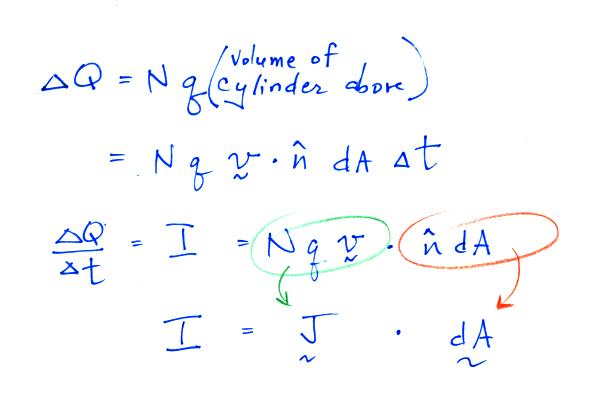 ΔQ = N q (volume of cylinder above)
= N q v̰ · n̂ dA Δt
ΔQ/Δt = I = N q v̰ · n̂ dA
I = J̰ · dA̰